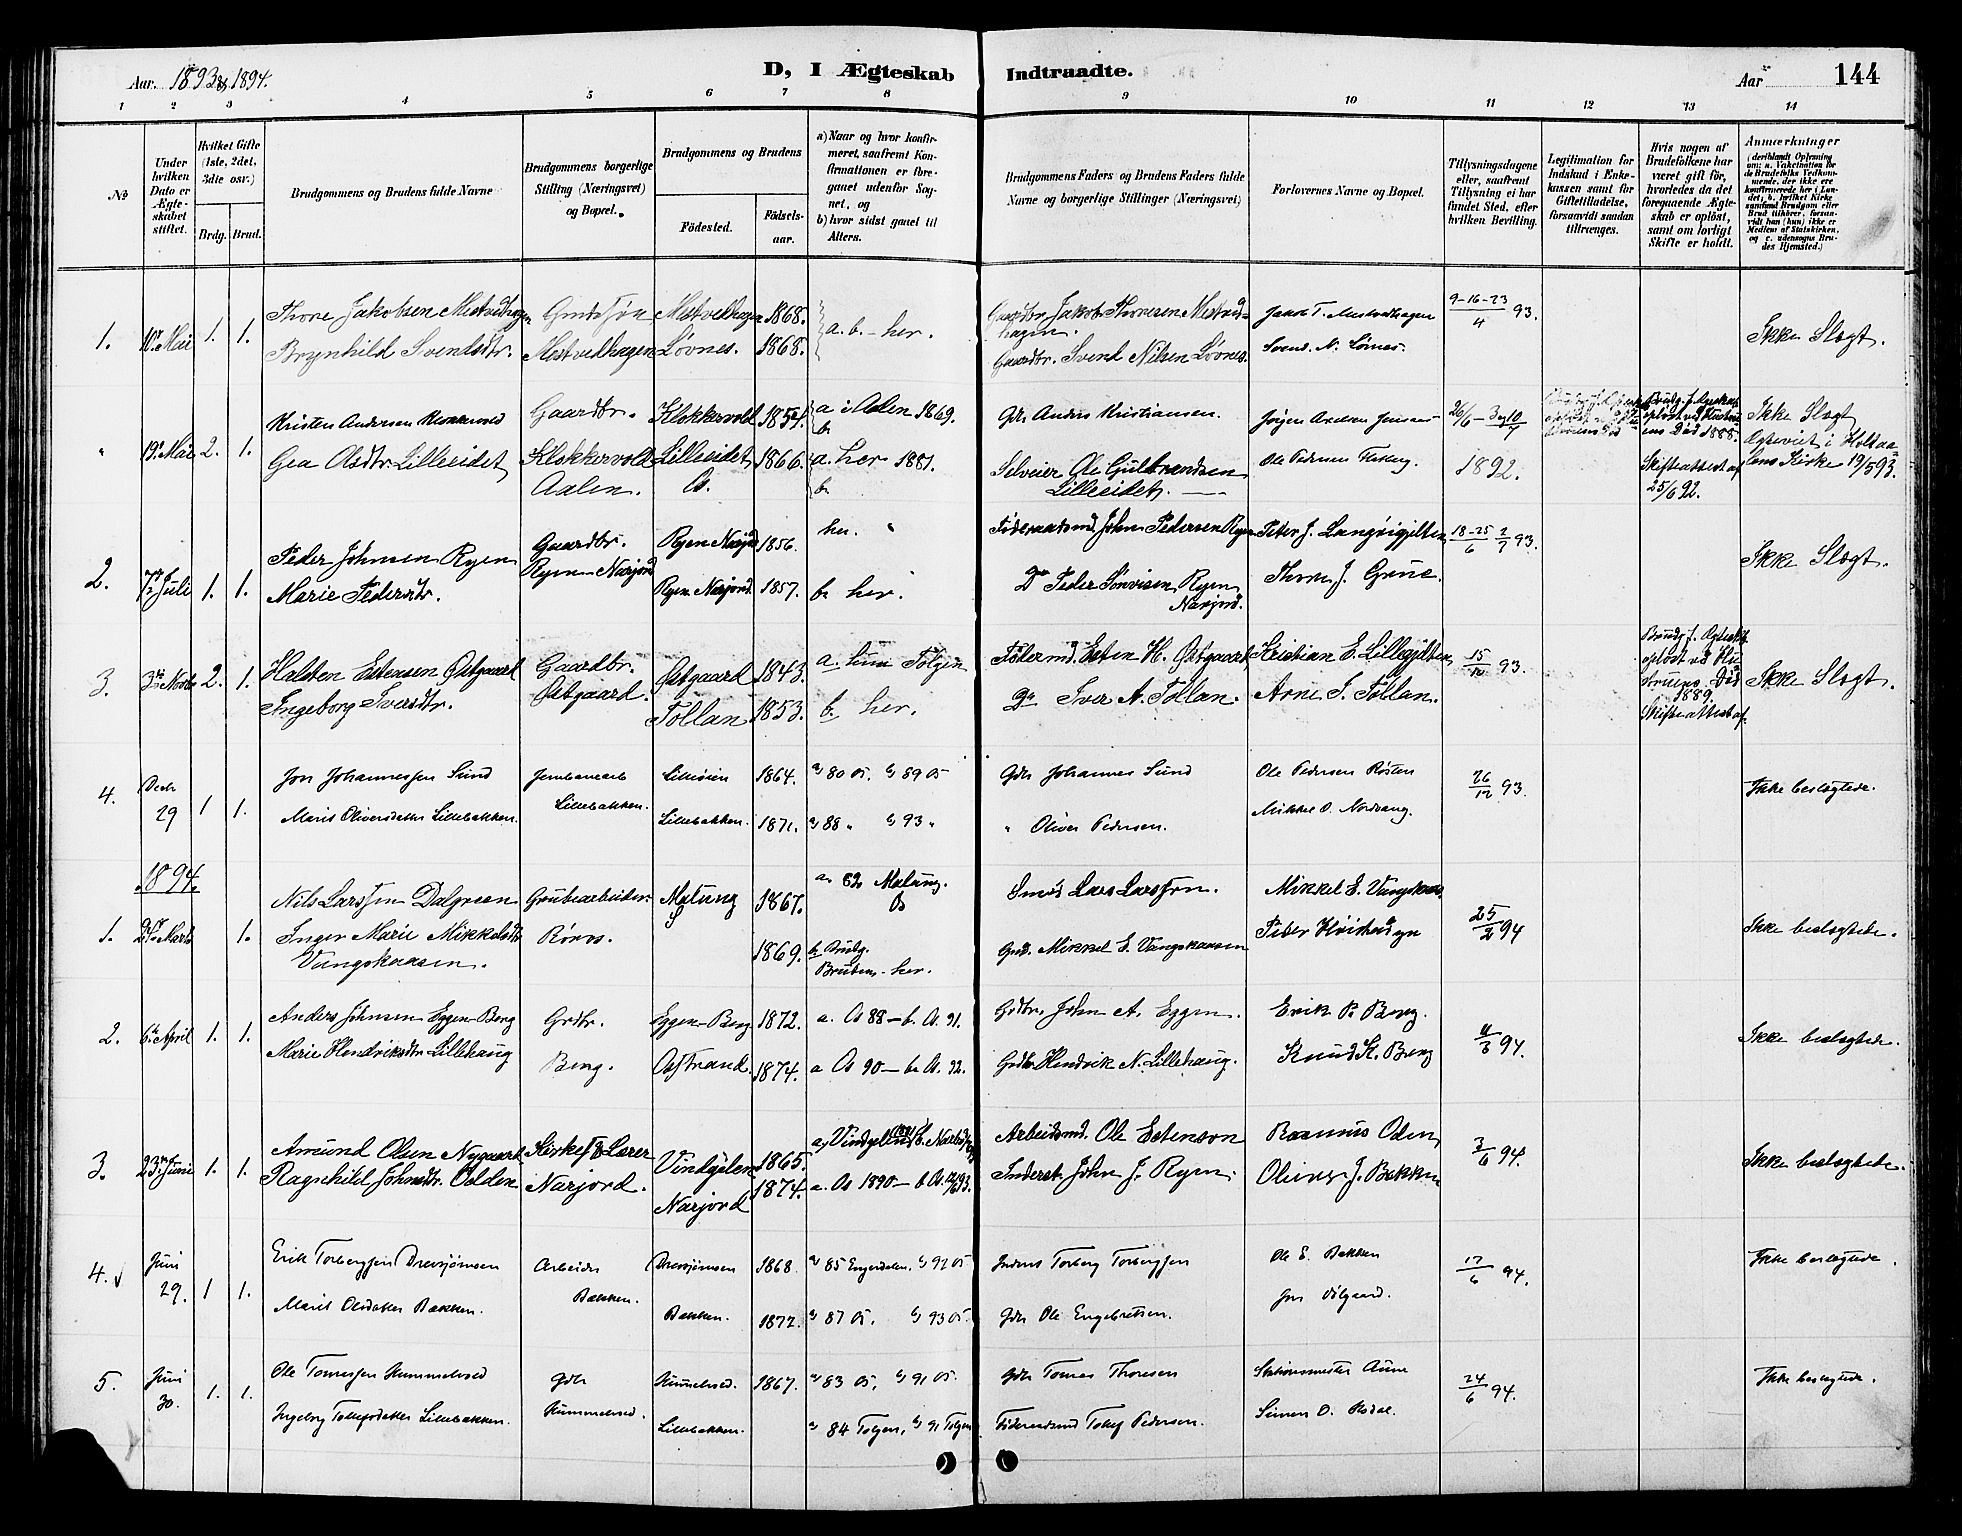 Aar. 1893 & 1894.
D, I Ægteskab Indtraadte.
Aar 144
1 2 3 4 5 6 7 8 9 10 11 12 13 14
No
Under hvilken Dato er Ægteskabet stiftet.
Hvilket Gifte (1ste, 2det, 3die osv.)
Brdg. Brud.
Brudgommens og Brudens fulde Navne
Brudgommens borgerlige Stilling (Næringsvei) og Bopæl.
Brudgommens og Brudens
Födested.
Födselsaar.
a) Naar og hvor konfirmeret, saafremt Konfirmationen er foregaaet udenfor Sognet, og
b) hvor sidst gaaet til Alters.
Brudgommens Faders og Brudens Faders fulde Navne og borgerlige Stillinger (Næringsvei)
Forlovernes Navne og Bopæl.
Tillysningsdagene eller, saafremt Tillysning ei har fundet Sted, efter hvilken Bevilling.
Legitimation for Indskud i Enkekassen samt for Giftetilladelse, forsaavidt saadan tiltrænges.
Hvis nogen af Brudefolkene har været gift för, hvorledes da det foregaaende Ægteskab er oplöst, samt om lovligt Skifte er holdt.
Anmærkninger
(deriblandt Oplysning om: a. Vakcination for de Brudefolks Vedkommende, der ikke ere konfirmerede her i Landet; b. hvilket Kirkesamfund Brudgom eller Brud tilhörer, forsaavidt han (hun) ikke er Medlem af Statskirken, og c. udensogns Brudes Hjemsted.)
1. 10de Mai 1. 1. Thore Jakobsen Mestvedhagen Mestvedhagen 1868. a. b. - her. Gaardbr. Jakob Thoresen Mestvedhagen. Jakob T. Mestvedhagen 9-16-23/4 93. Ikke Slægt.
Brynhild Svendsdtr. Mestvedhagen Løvnes. 1868. Gaardbr. Svend Nilsen Løvnes. Svend. N. Løvnes.
" 19de Mai 2. 1. Kristen Andersen Gaardbr. Klokkervold 1854. a. i Aalen 1869. b. Gdr. Anders Kristiansen. Jørgen Andersen 1892. Brudg. f. Ægteskab opløst ved Hustruens Død 1888. Ikke Slægt
Gea Olsdtr. Lilleeidet, Klokkervold Aalen. Lilleeidet, Os. 1866. a. her 1881. b. Selveier Ole Gulbrandsen Lilleeidet. Ole Pedersen Skifteattest af 25/6 92. Ægteviet i Holtaalens Kirke 19/5 93.
2. 7de Juli 1. 1. Peder Johnsen Ryen Gaardbr. Ryen Narjord Ryen Narjord 1856. her. " Føderaadsmd. John Pedersen Ryen Peter J. Langøigjelten, 18-25/6 2/7 93. Ikke Slægt.
Marie Pedersdtr. Ryen Narjord. 1857. b. her. Do Peder Simensen Ryen, Narjord. Thore J. Grue.
3. 3de Novbr 2. 1. Halsten Estensen Østgaard Gaardbr. Østgaard. Østgaard 1843. a. hun Tolgen Fødermd. Esten H. Østgaard Kristian E. Lillegjelten, 15/10 93. Brudg. f. Ægteskb. opløst ved Hustruens Død 1889. Skifteattest af. Ikke Slægt.
Ingeborg Iversdtr. Tollan 1853. b. her. Do Iver A. Tollan. Arne I. Tollan.
4. Decbr 29 1 1. Jon Johannessen Sund Jernbanearb Lillebakken. Lilleøien 1864. a) 80 Os. b) 89 Os Gdr Johannes Sund Ole Pedersen Røsten 26/12 93. Ikke beslægtede.
Marit Oliversdatter Lillebakken. Lillebakken. 1871. a) 88 " b) 93 " " Oliver Pedersen. Mikkel O. Nordvang.
1894.
1. 27de Marts 1. Nils Larssen Dalgreen Grubearbeider Røros. Malung S 1867. a. 82 Malung. Os Smed Lars Larssøn. Mikkel E. Vangskaasen 25/2 94 Ikke beslægtede.
Inger Marie Mikkelsdtr Vangskaasen. 1869. b. Brudg. Bruden - her. Grd. Mikkel E. Vangskaasen Peder Høishaugen
2. 6te April 1. 1. Anders Johnsen Eggen-Berg Grdbr. Berg. Eggen-Berg 1872. a. Os 88 - b. Os. 91. Grdbr. John A. Eggen. Erik P. Berg. 4/3 94. Ikke beslægtede.
Marie Hendriksdtr. Lillehaug Osstrand 1874. a Os 90 - b. Os. 92. Grdbr. Hendrik N. Lillehaug. Knud K. Berg
3. 23de Juni 1. 1. Amund Olsen Nygaard Kirkes. & Lærer Narjord. Vindgelen 1865. a) Vindgelen Arbeidsmd. Ole Estenson Rasmus Oden, 3/6 94. Ikke beslægtede.
Ragnhild Johnsdtr. Odden Narjord 1874. a. Os 1890 - b. Os. Inderst. John J. Ryen. Oliver J. Bakken
4. Juni 29. 1 1. Erik Torbergsen Drevsjømoen Arbeider Bakken. Drevsjømoen 1868. a) 85 Engerdalen, b) 92 Os Inderst Torberg Torbergsen Ole E. Bakken 17/6 94. Ikke beslægtede.
Marit Olsdatter Bakken. Bakken. 1872. a) 87 Os. b) 93 Os. Gdr Ole Engebretsen. Jon Dølgaard.
5. Juni 30. 1. 1. Ole Tomessen Hummelvold Gdbr Hummelvold. Hummelvold. 1867. a) 83 Os, b) 91 Os. Gdr Tomes Thoresen Stationsmester Aune 24/6 94. Ikke beslægtede.
Ingeborg Tollefsdatter Lillebakken. Lillebakken. a) 84 Tolgen, b) 91 Tolgen Føderaadsmd Tollef Pedersen. Simen O. Hodal.